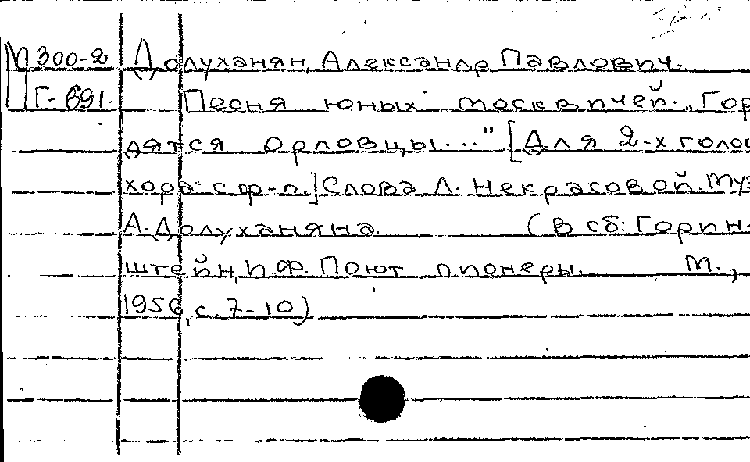 М300-2 Долуханян, Александр Павлович.
Г-691 Песня юных москвичей. „Гор
дятся орловцы..." [Для 2-х голос
хора с ф-п.] Слова Л. Некрасовой. Муз
А. Долуханяна. (В сб: Горин-
штейн, И.Ф. Поют пионеры. М.,
1956, с. 7-10)